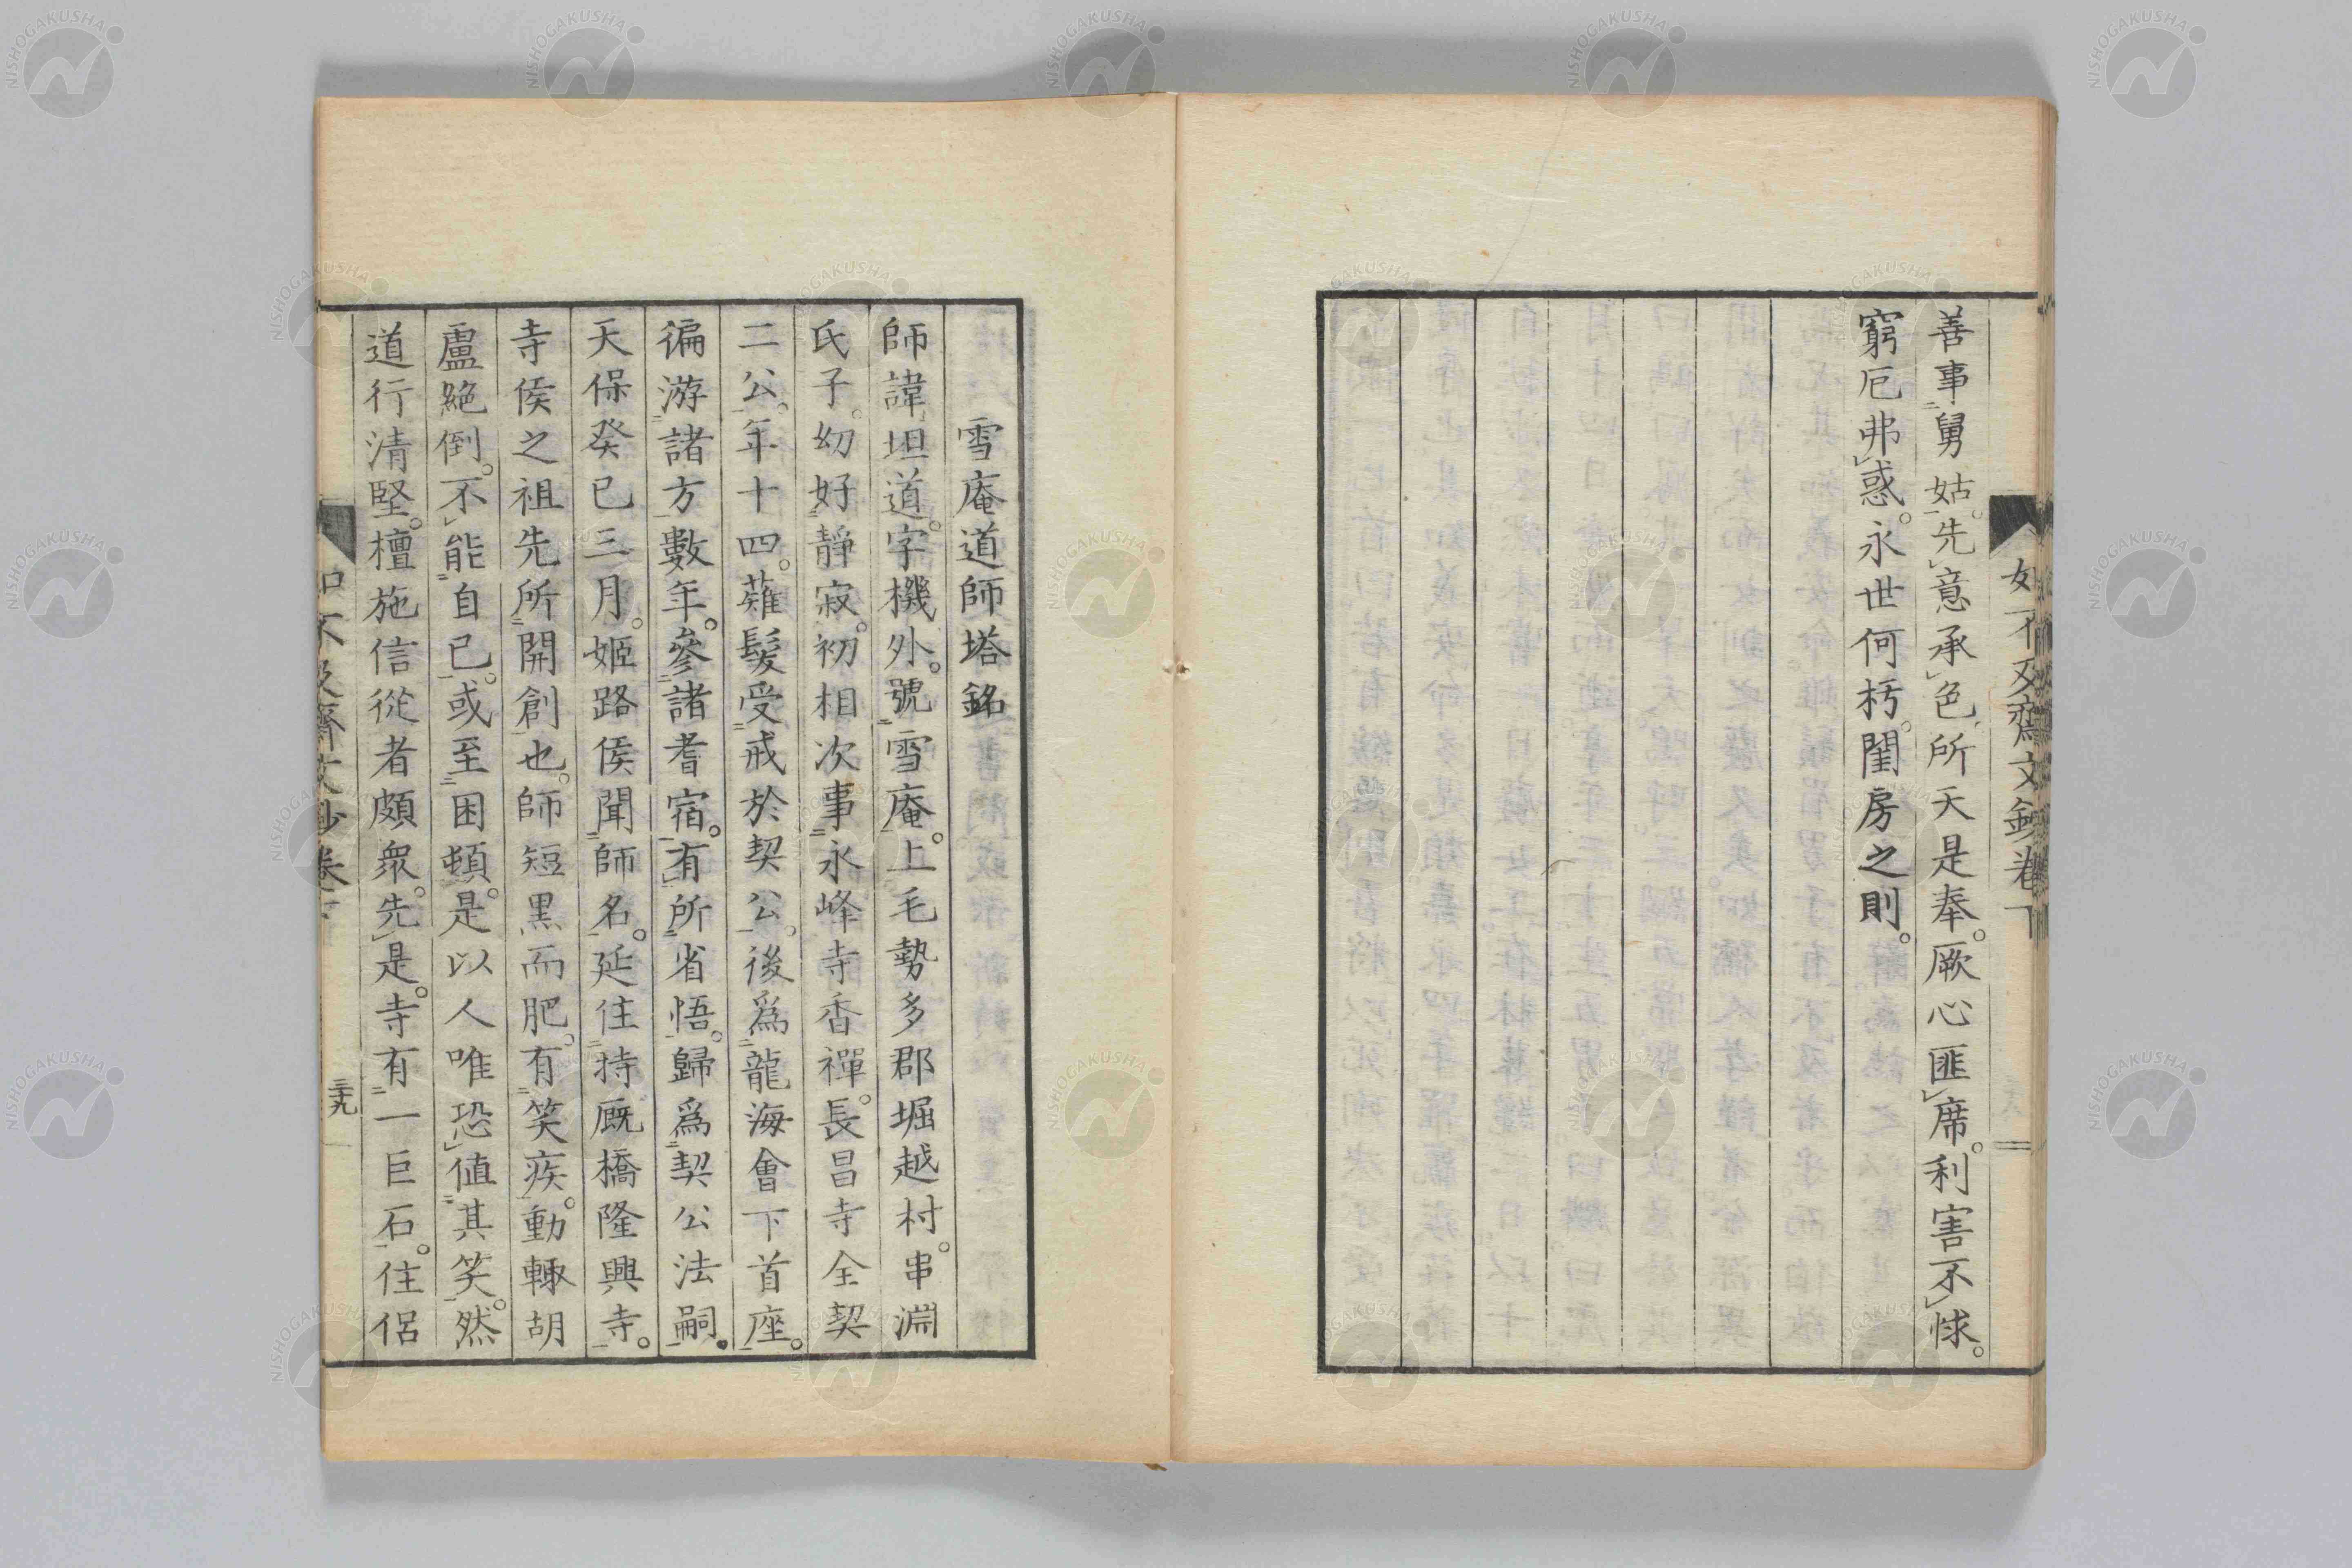 如不及齋文鈔卷下
善事舅姑。先意承色。所天是奉。厥心匪席。利害不悚。
窮厄弗惑。永世何朽。閨房之則。
雪庵道師塔銘
師諱坦道。字機外。號雪庵。上毛勢多郡堀越村。串淵
氏子。幼好靜寂。初相次事永峰寺香禪。長昌寺全契
二公。年十四。薙髮受戒於契公。後爲龍海會下首座。
徧游諸方數年。參諸耆宿。有所省悟。歸爲契公法嗣。
天保癸巳三月。姬路侯聞師名。延住持厩橋隆興寺。
寺侯之祖先所開創也。師短黑而肥。有笑疾。動輙胡
盧絕倒。不能自已。或至困頓。是以人唯恐値其笑。然
道行清堅。檀施信從者頗衆。先是。寺有一巨石。住侶
如不及齋文鈔卷下
三十九
NISHOGAKUSHA